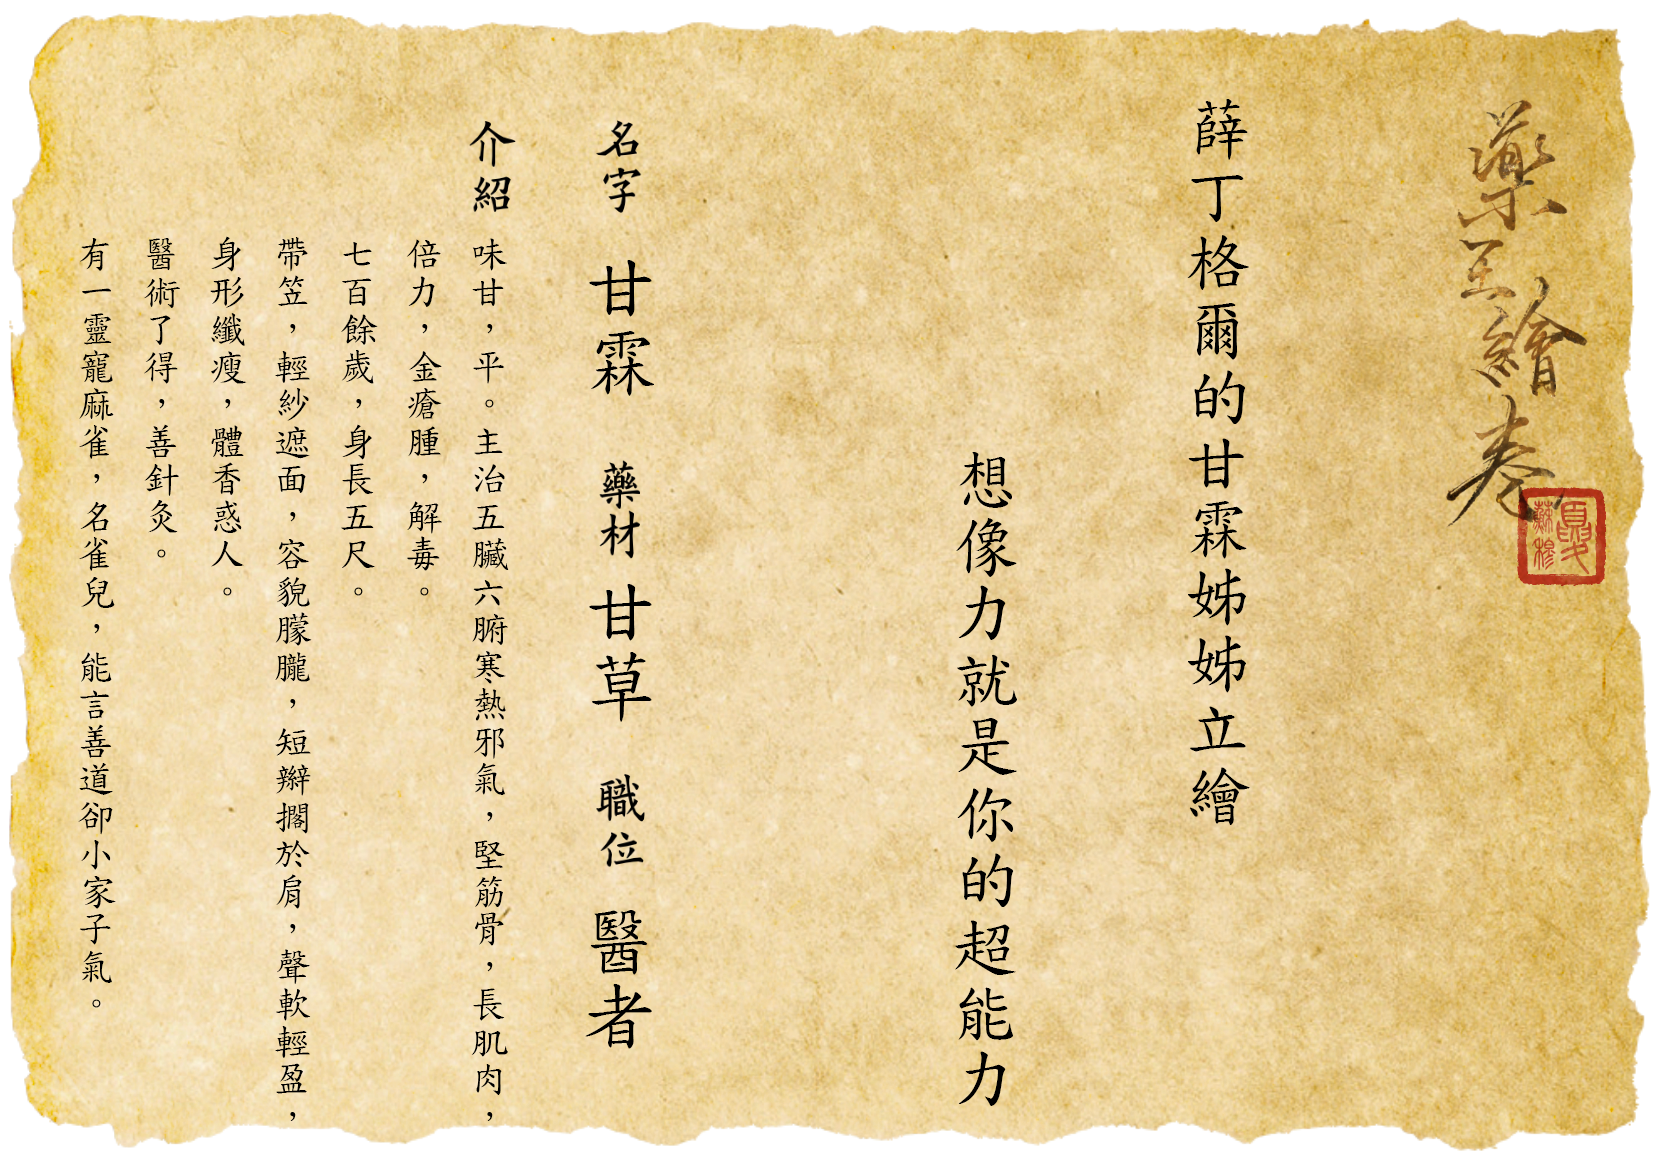 藥王繪卷
薛丁格爾的甘霖姊姊立繪
想像力就是你的超能力
名字 甘霖 藥材 甘草 職位 醫者
介紹 味甘，平。主治五臟六腑寒熱邪氣，堅筋骨，長肌肉，
倍力，金瘡腫，解毒。
七百餘歲，身長五尺。
帶笠，輕紗遮面，容貌朦朧，短辮擱於肩，聲軟輕盈，
身形纖瘦，體香惑人。
醫術了得，善針灸。
有一靈寵麻雀，名雀兒，能言善道卻小家子氣。